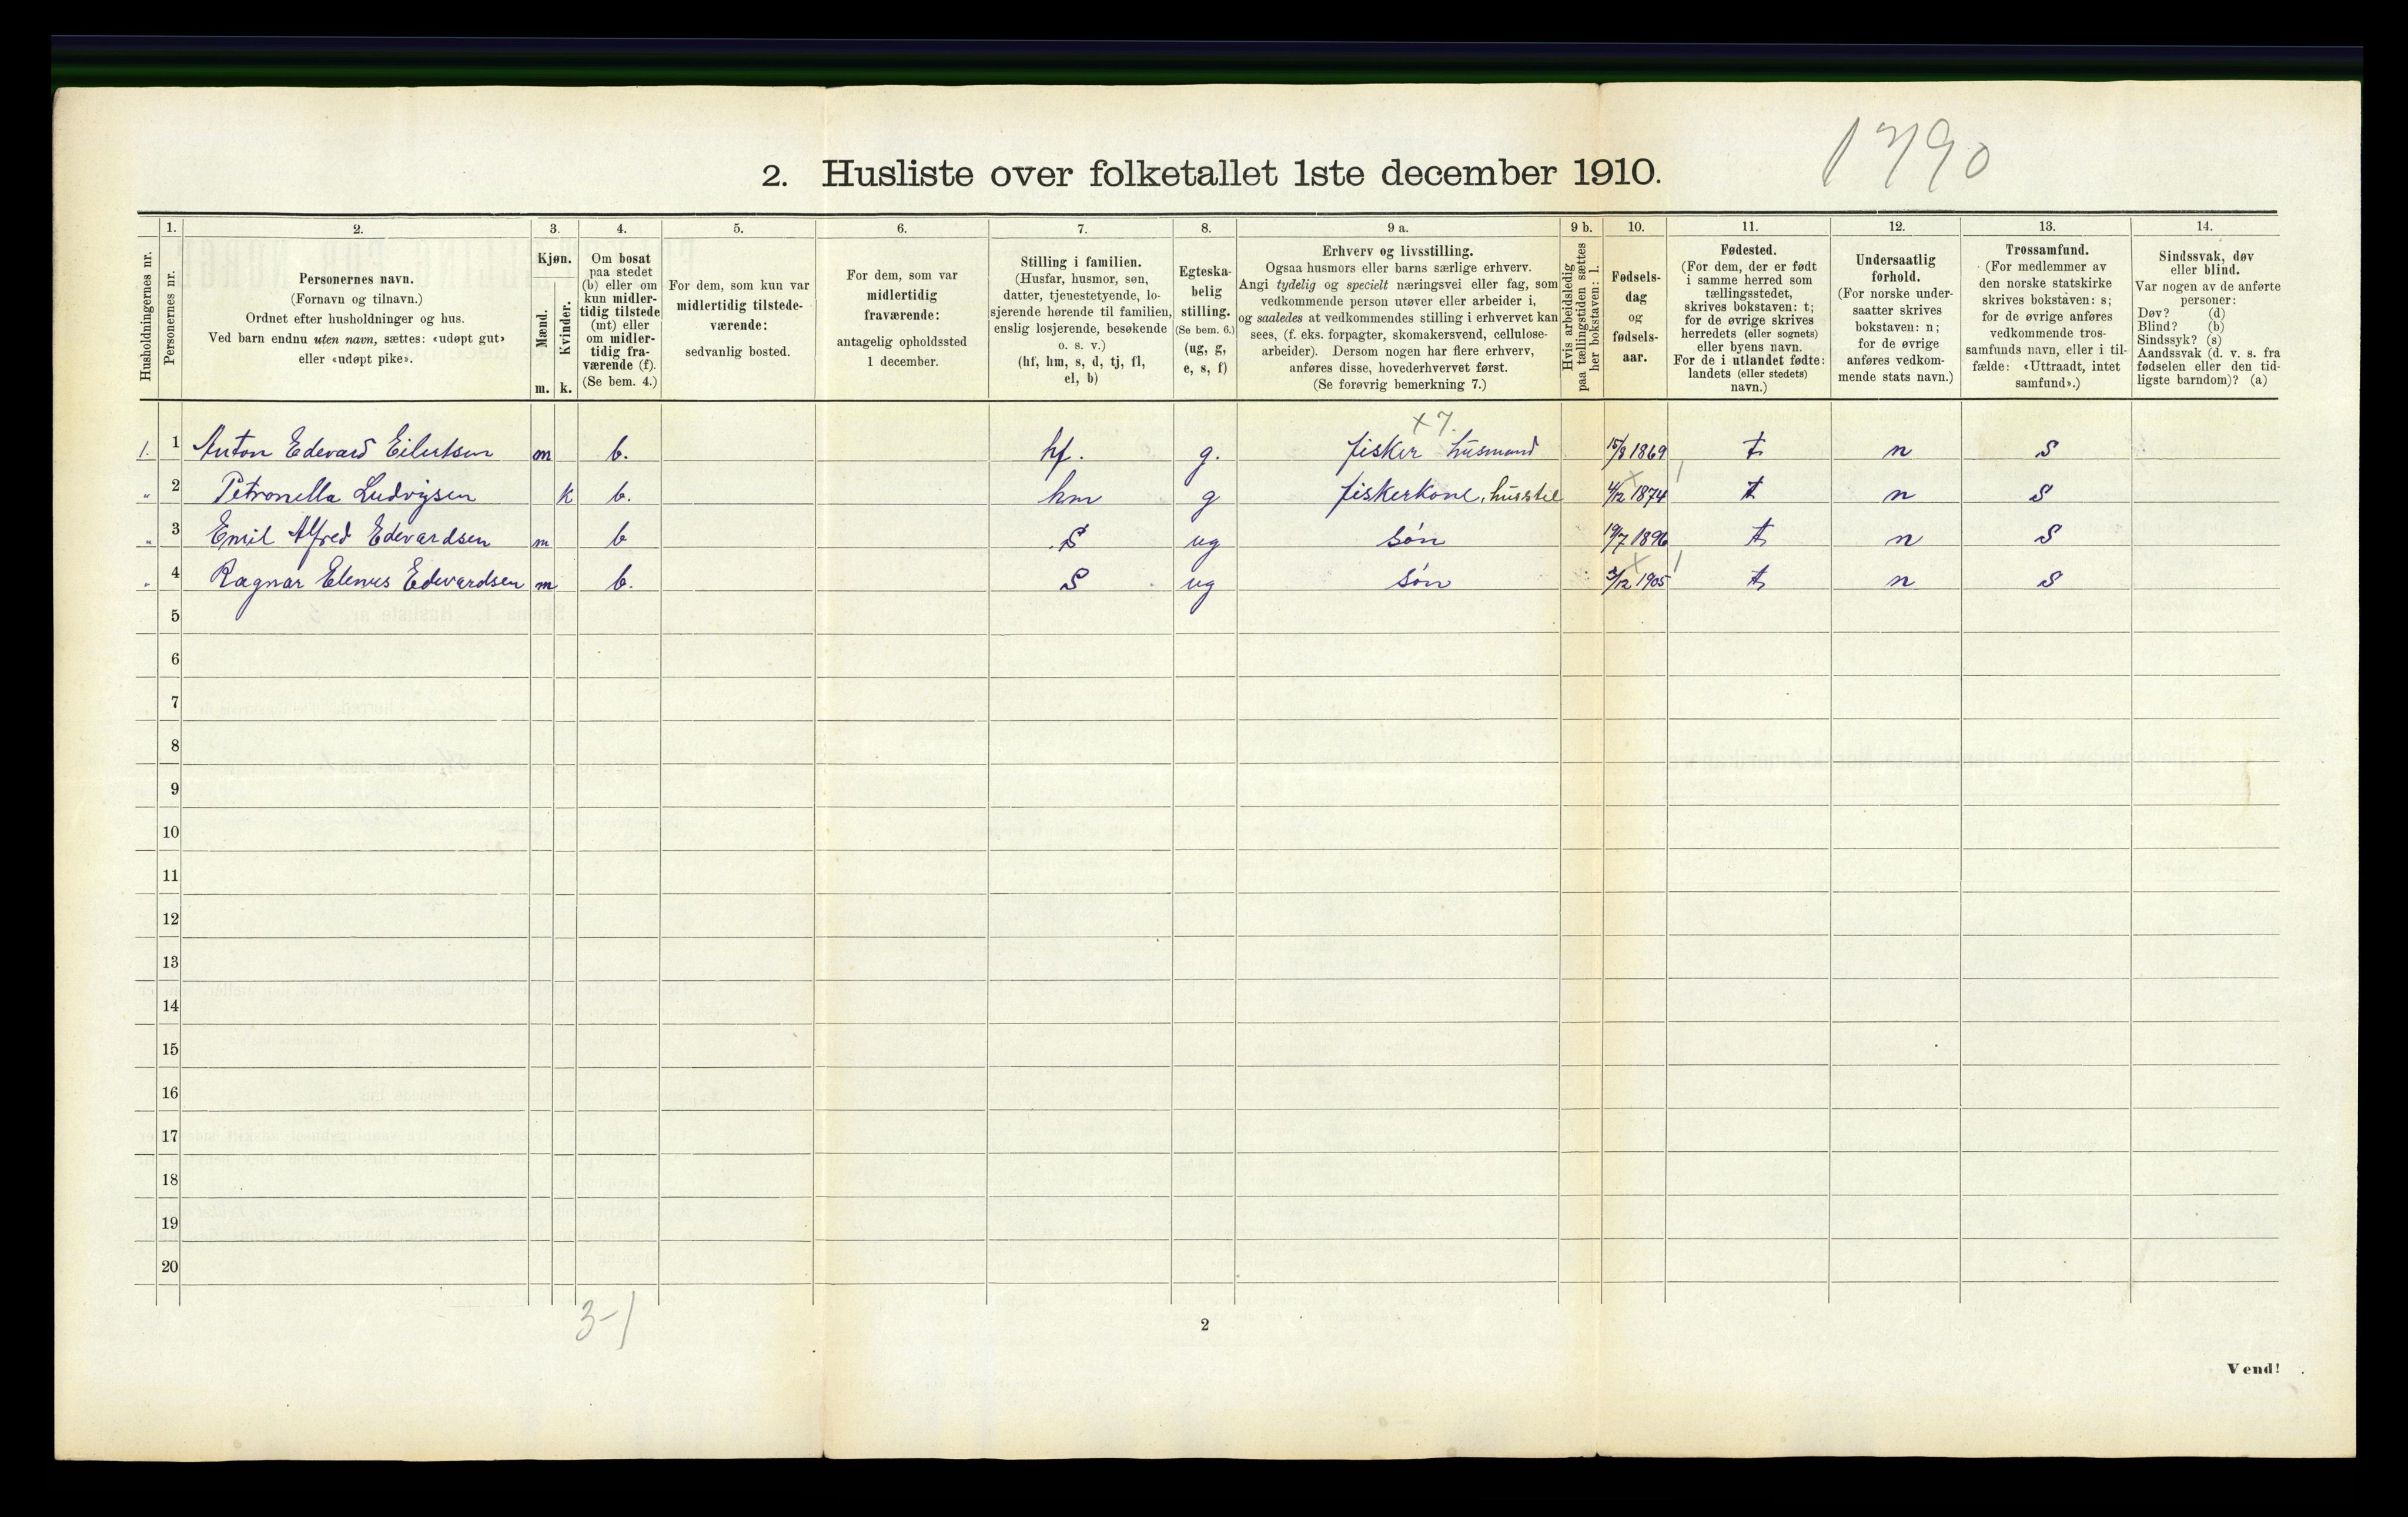 1790
2. Husliste over folketallet 1ste december 1910.
Husholdningernes nr.
1.
Personernes nr.
2.
Personernes navn.
(Fornavn og tilnavn.)
Ordnet efter husholdninger og hus.
Ved barn endnu uten navn, sættes: «udøpt gut»
eller «udøpt pike».
3.
Kjøn.
Mænd.
m.
Kvinder.
k.
4.
Om bosat
paa stedet
(b) eller om
kun midler-
tidig tilstede
(mt) eller
om midler-
tidig fra-
værende (f).
(Se bem. 4.)
5.
For dem, som kun var
midlertidig tilstede-
værende:
sedvanlig bosted.
6.
For dem, som var
midlertidig
fraværende:
antagelig opholdssted
1 december.
7.
Stilling i familien.
(Husfar, husmor, søn,
datter, tjenestetyende, lo-
sjerende hørende til familien,
enslig losjerende, besøkende
o. s. v.)
(hf, hm, s, d, tj, fl,
el, b)
8.
Egteska-
belig
stilling.
(Se bem. 6.)
(ug, g,
e, s, f)
9 a.
Erhverv og livsstilling.
Ogsaa husmors eller barns særlige erhverv.
Angi tydelig og specielt næringsvei eller fag, som
vedkommende person utøver eller arbeider i,
og saaledes at vedkommendes stilling i erhvervet kan
sees, (f. eks. forpagter, skomakersvend, cellulose-
arbeider). Dersom nogen har flere erhverv,
anføres disse, hovederhvervet først.
(Se forøvrig bemerkning 7.)
9 b.
Hvis arbeidsledig
paa tællingstiden sættes
her bokstaven: l.
10.
Fødsels-
dag
og
fødsels-
aar.
11.
Fødested.
(For dem, der er født
i samme herred som
tællingsstedet,
skrives bokstaven: t;
for de øvrige skrives
herredets (eller sognets)
eller byens navn.
For de i utlandet fødte:
landets (eller stedets)
navn.)
12.
Undersaatlig
forhold.
(For norske under-
saatter skrives
bokstaven: n;
for de øvrige
anføres vedkom-
mende stats navn.)
13.
Trossamfund.
(For medlemmer av
den norske statskirke
skrives bokstaven: s;
for de øvrige anføres
vedkommende tros-
samfunds navn, eller i til-
fælde: «Uttraadt, intet
samfund».)
14.
Sindssvak, døv
eller blind.
Var nogen av de anførte
personer:
Døv? (d)
Blind? (b)
Sindssyk? (s)
Aandssvak (d. v. s. fra
fødselen eller den tid-
ligste barndom)? (a)
x 7.
1. 1 Anton Edevard Eilertsen m b. hf. g. fisker husmand 15/8 1869 t n s
" 2 Petronella Ludvigsen k b. hm g fiskerkone, husstel 4/12 1874 t n s
" 3 Emil Alfred Edevardsen m b s ug søn 19/7 1896 t n s
" 4 Ragnar Elenus Edevardsen m b. s ug søn 3/12 1905 t n s
5
6
7
8
9
10
11
12
13
14
15
16
17
18
19
20
3-1
2
Vend!